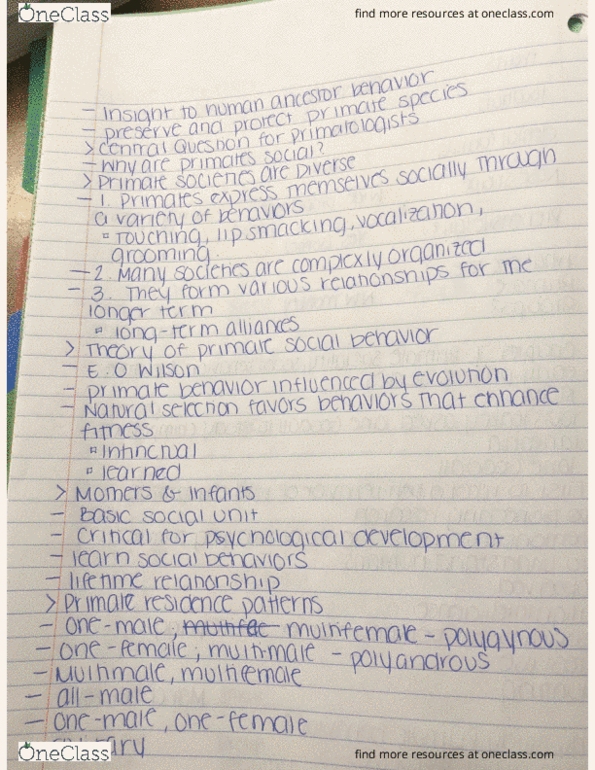 OneClass
find more resources at oneclass.com
- Insight to human ancestor behavior
- preserve and protect primate species
> central Question for primatologists
- why are primates social?
> Primate societies are Diverse
- 1. Primates express themselves socially through
a variety of behaviors
▫ Touching, lip smacking, vocalization,
grooming.
- 2. Many societies are complexly organized
- 3. They form various relationships for the
longer term
▫ long-term alliances
> Theory of primate social behavior
- E. O Wilson
- primate behavior influenced by evolution
- Natural selection favors behaviors that enhance
fitness
▫ Intinctual
▫ learned
> Mothers & Infants
- Basic social unit
- Critical for psychological development
- learn social behaviors
- lifetime relationship
> Primate residence patterns
- one-male, multifemale - polygynous
- one-female, multi-male - polyandrous
- Multimale, multifemale
- all-male
- one-male, one-female
OneClass
find more resources at oneclass.com